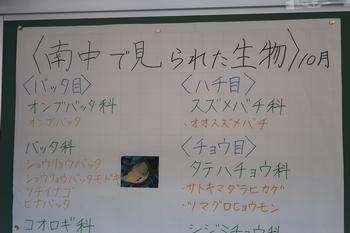 〈南中で見られた生物〉10月
〈バッタ目〉
オンブバッタ科
オンブバッタ
バッタ科
・ショウリョウバッタ
・ショウリョウバッタモドキ
・ツチイナゴ
・ヒナバッタ
コオロギ科
〈ハチ目〉
スズメバチ科
・オオスズメバチ
〈チョウ目〉
タテハチョウ科
・サトキマダラヒカゲ
・ツマグロヒョウモン
シジミチョウ科